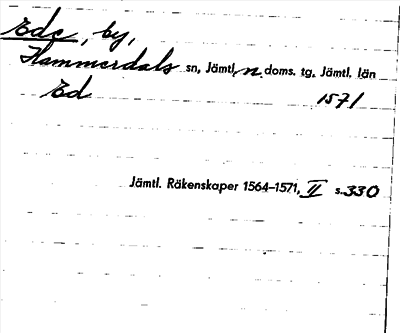 Ede, by,
Hammerdals sn, Jämtl. n doms. tg, Jämtl. län
Ed 1571
Jämtl. Räkenskaper 1564–1571, II s. 330